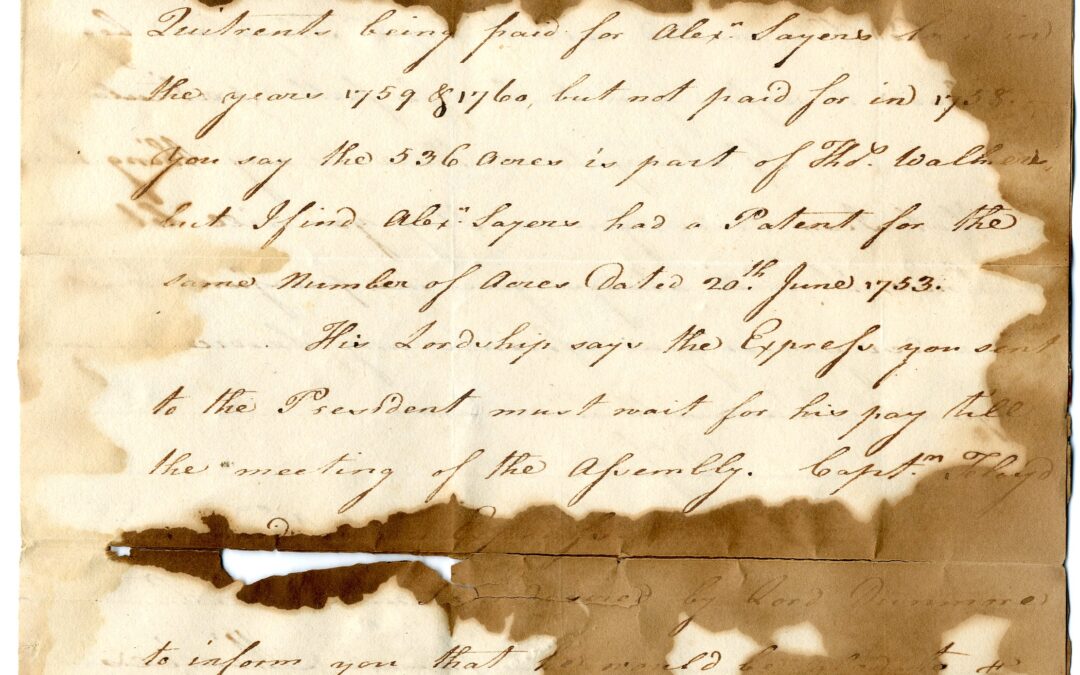 Quitrents being paid for Alexr. Sayers in
the years 1759 & 1760, but not paid for in 1758.
You say the 536 Acres is part of Thos. Walkers,
but I find Alexr. Sayers had a Patent for the
same Number of Acres Dated 20th. June 1753.
His Lordship says the Express you sent
to the President must wait for his pay till
the meeting of the Assembly. Captn. Floyd
by Lord Dunmore
to inform you that he would be to